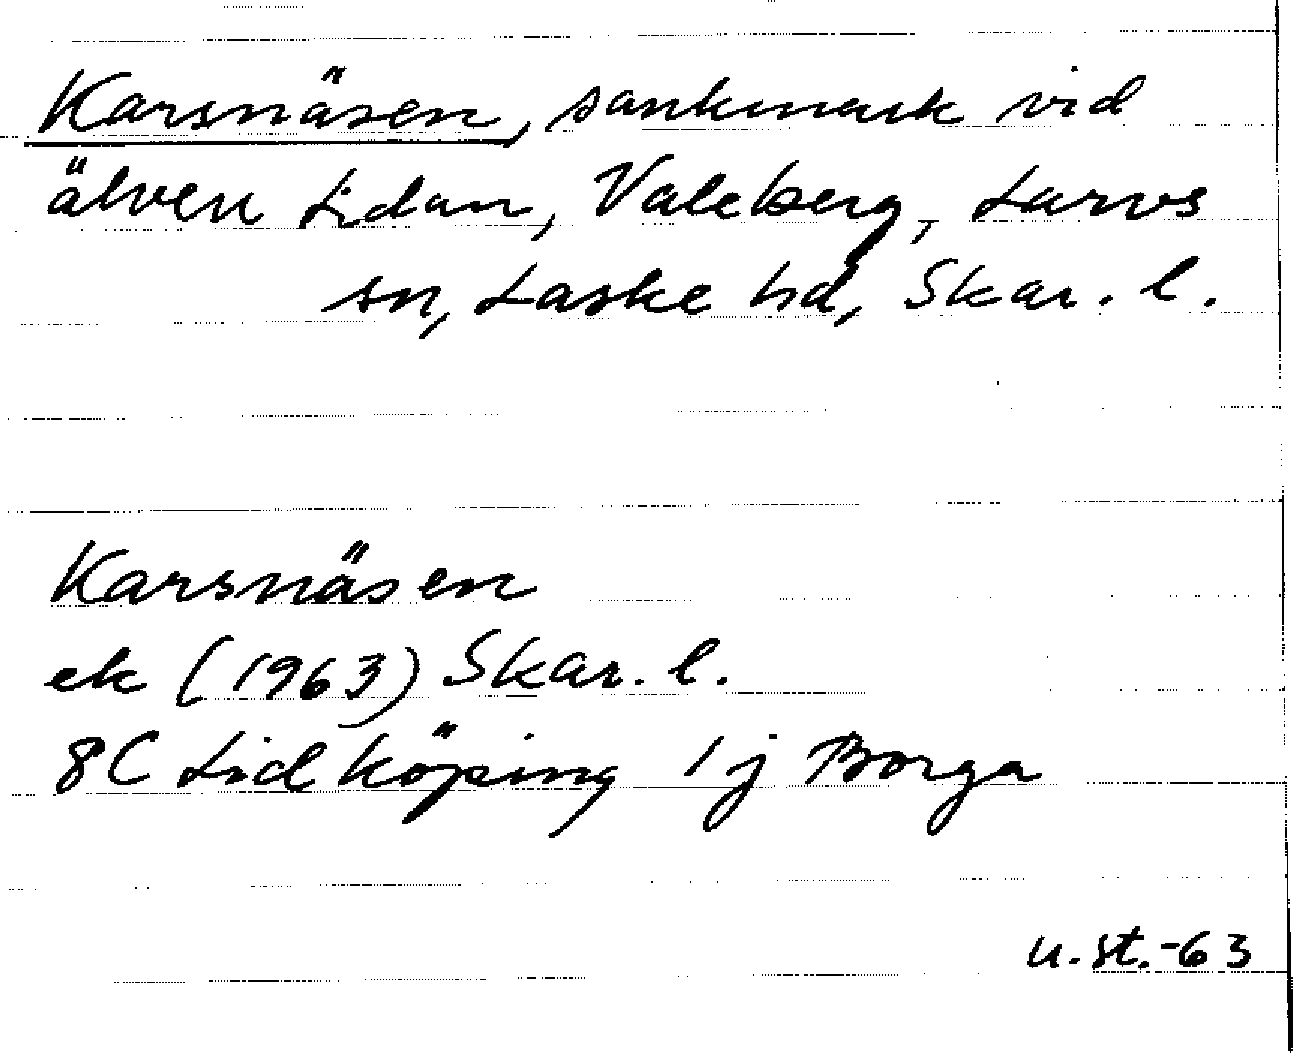 Karsnäsen, sankmark vid
älven Lidan, Valeberg, Larvs
sn, Laske hd, Skar. l.
Karsnäsen
ek (1963) Skar. l.
8C Lidköping 1j Borga
u.st.-63